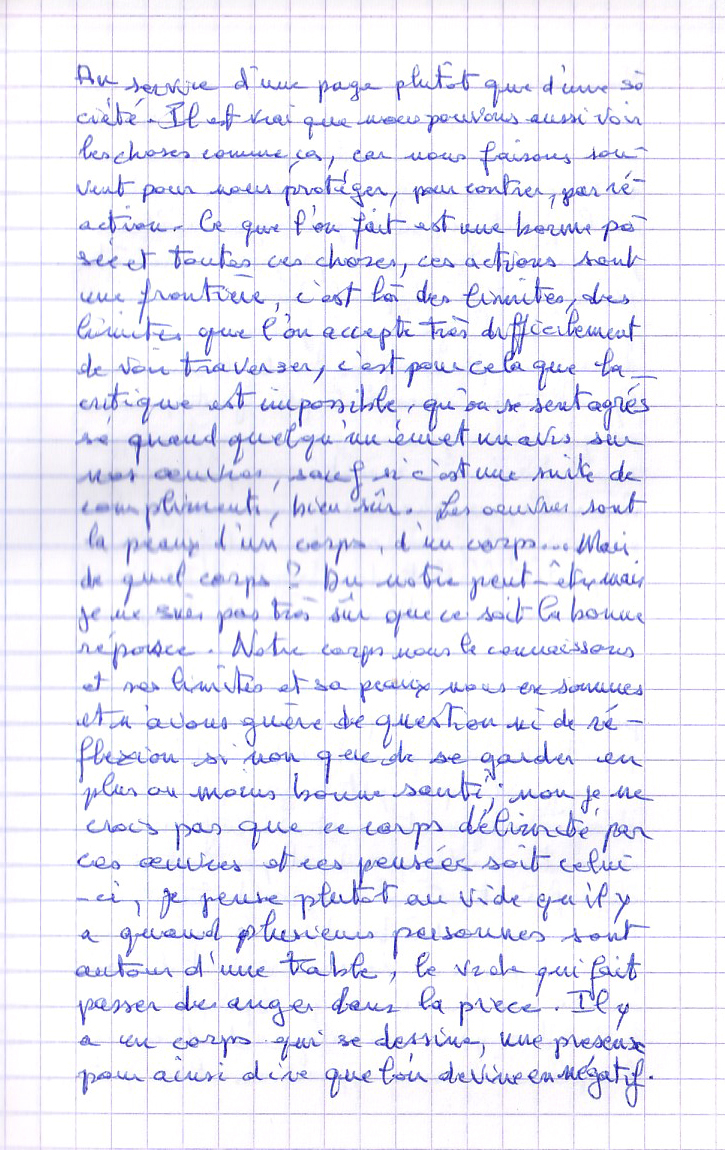 Au service d'une page plutôt que d'une so
ciété. Il est vrai que nous pouvons aussi voir
les choses comme ça, car nous faisons sou-
vent pour nous protéger, pour contrer, par ré-
action. Ce que l'on fait est une borne po
sée et toutes ces choses, ces actions sont
une frontière, c'est là des limites, des
limites que l'on accepte très difficilement
de voir traverser, c'est pour cela que la
critique est impossible, qu'on se sent agres
sé quand quelqu'un émet un avis sur
nos œuvres, sauf si c'est une suite de
compliments, bien sûr. Les œuvres sont
la peaux d'un corps, d'un corps... Mais
de quel corps ? Du notre peut-être, mais
je ne suis pas très sûr que ce soit la bonne
réponse. Notre corps nous le connaissons
et ses limites et sa peaux nous en sommes
et n'avons guère de question ni de ré-
flexion si non que de se garder en
plus ou moins bonne santé, non je ne
crois pas que ce corps délimité par
ces œuvres et ces pensées soit celui
-ci, je pense plutôt au vide qu'il y
a quand plusieurs personnes sont
autour d'une table, le vide qui fait
passer des anges dans la piece. Il y
a un corps qui se dessine, une
pour ainsi dire que l'on devine en négatif.